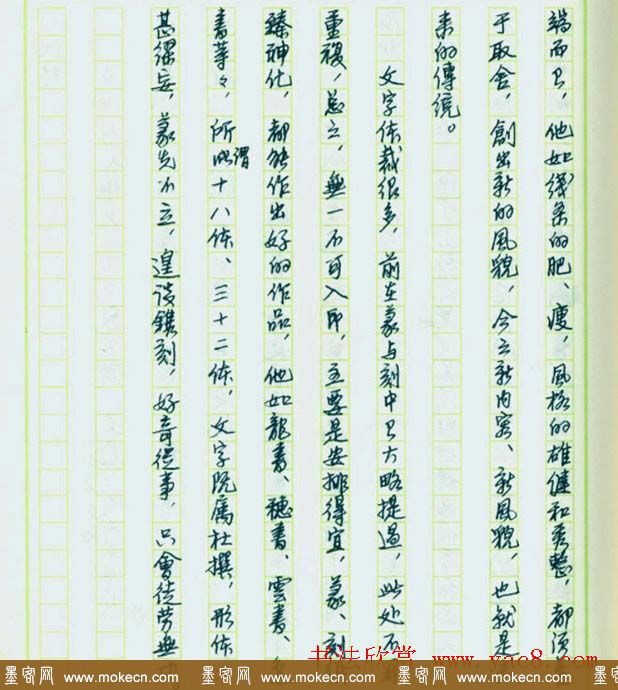 端而已，他如线条的肥、瘦，風格的雄健和秀整，都须
于取舍，創出新的風貌，今云新内容、新風貌，也就是
来的傳統。
文字体裁很多，前在篆与刻中已大略提過，此处不
重複，总之，無一不可入印，主要是安排得宜，篆、刻
臻神化，都能作出好的作品，他如龍書、穗書、雲書、
書等々，所謂十八体、三十二体，文字既属杜撰，形体
甚繆妄，篆先不立，遑谈鐫刻，好奇從事，只會徒劳無功
书法欣赏 www.yac8.com
墨客网 www.mokecn.com 墨客网 www.mokecn.com 墨客网 www.mokecn.com